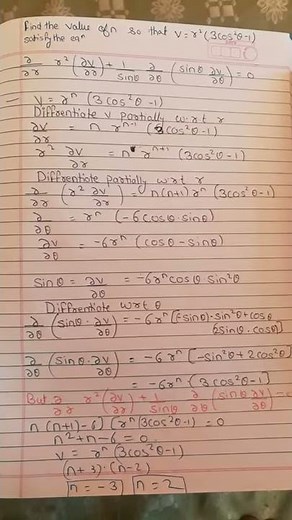 Find the value of n so that V = r² (3cos²θ-1)
satisfy the eqⁿ
∂/∂r r² (∂V/∂r) + 1/sinθ ∂/∂θ (sinθ ∂V/∂θ) = 0
V = rⁿ (3cos²θ-1)
Diffrentiate V partially w.r.t r
∂V/∂r = n rⁿ⁻¹ (3cos²θ-1)
r² ∂V/∂r = n rⁿ⁺¹ (3cos²θ-1)
Diffrentiate partially w.r.t r
∂/∂r (r² ∂V/∂r) = n(n+1) rⁿ (3cos²θ-1)
∂/∂θ = rⁿ (-6cosθ·sinθ)
∂V/∂θ = -6rⁿ (cosθ-sinθ)
sinθ = ∂V/∂θ = -6rⁿcosθ sin²θ
Diffrentiate w.r.t θ
∂/∂θ (sinθ·∂V/∂θ) = -6rⁿ[-sinθ)·sin²θ+cosθ
2sinθ·cosθ]
∂/∂θ (sinθ·∂V/∂θ) = -6rⁿ[-sin²θ+2cos²θ]
= -6rⁿ{3cos²θ-1]
But ∂/∂r r² (∂V/∂r) + 1/sinθ ∂/∂θ (sinθ ∂V/∂θ)
n(n+1)-6) (rⁿ(3cos²θ-1) = 0
n²+n-6 = 0
V = rⁿ (3cos²θ-1)
(n+3)·(n-2)
n = -3 n = 2